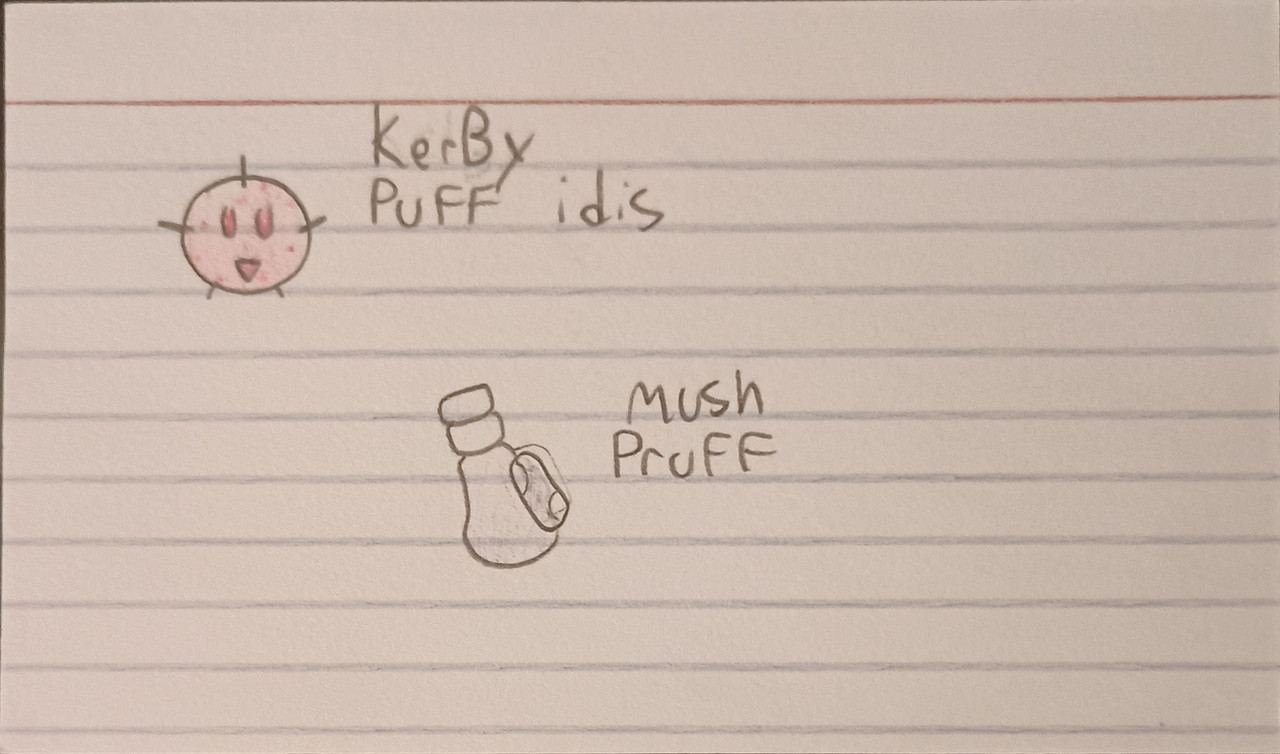 KerBy
PUFF idis
Mush
PruFF